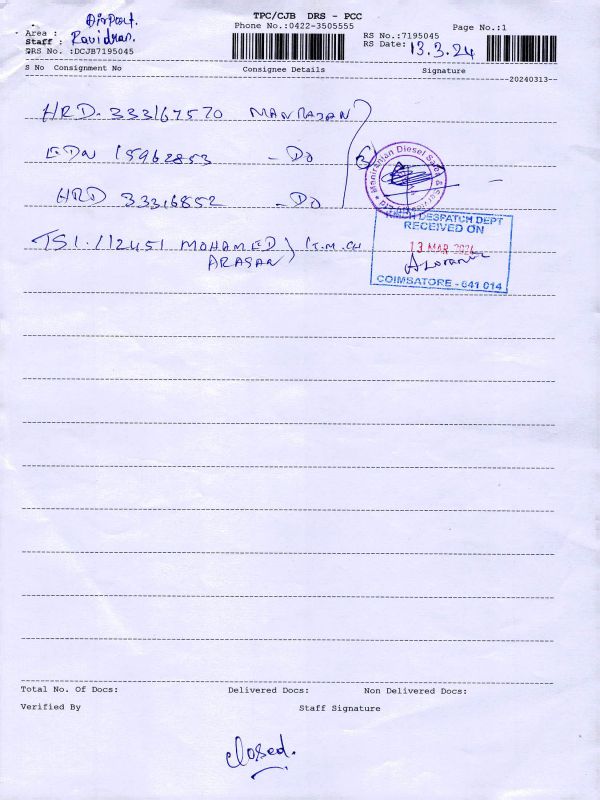 TPC/CJB DRS - PCC
Phone No.:0422-3505555
Page No.:1
Airport.
Area :
Staff : Ravidhran.
DRS No. :DCJB7195045
RS No.:7195045
RS Date: 13.3.24
S No Consignment No Consignee Details Signature
20240313
HRD. 333167570 MANRAJAN
EDN 15962853 - Do
HRD 33316852 - Do
TSI. 112451 MOHAMED
ARASAN
Diesel Sales & Service
DESPATCH DEPT
RECEIVED ON
13 MAR 2024
COIMBATORE - 641 014
Total No. Of Docs: Delivered Docs: Non Delivered Docs:
Verified By Staff Signature
closed.